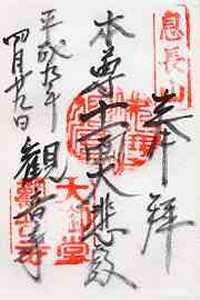 奉拝
息長山
本尊十一面大悲殿
大御堂
観音寺
平成九年
四月廿九日